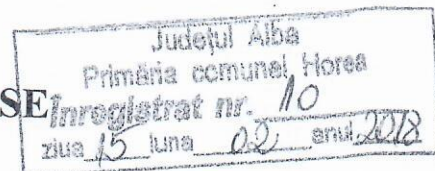 Județul Alba
Primăria comunei Horea
SE Înregistrat nr. 10
ziua 15 luna 02 anul 2018